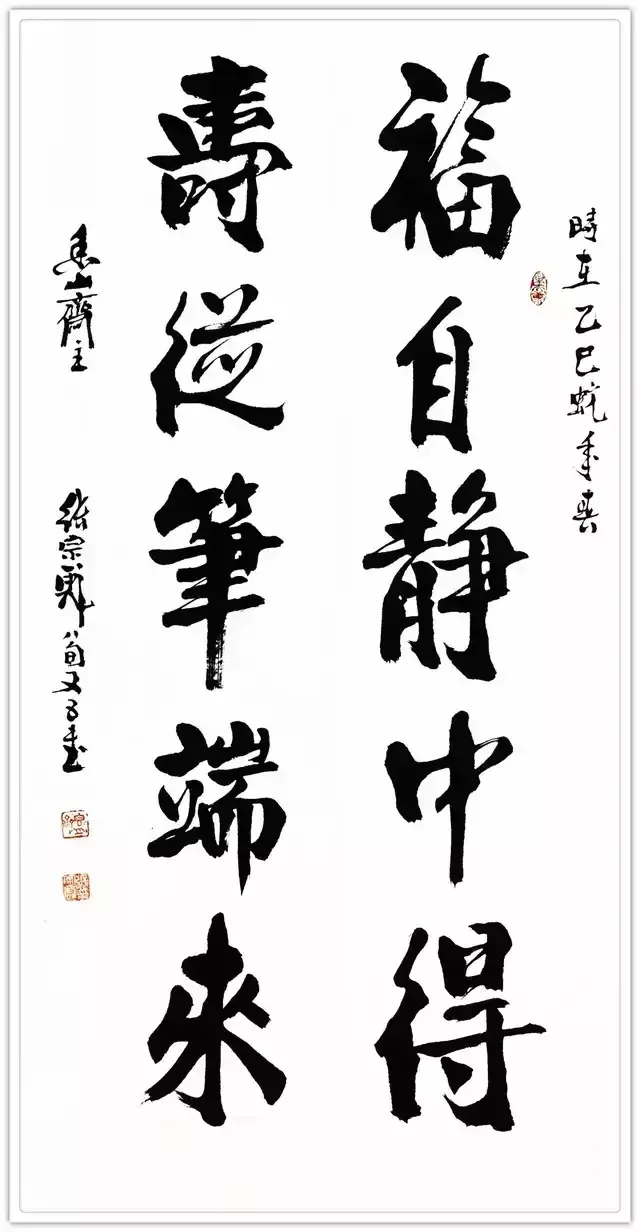 時在乙巳蛇年春
福自静中得
壽從筆端來
山齋主 張宗 八旬又五書